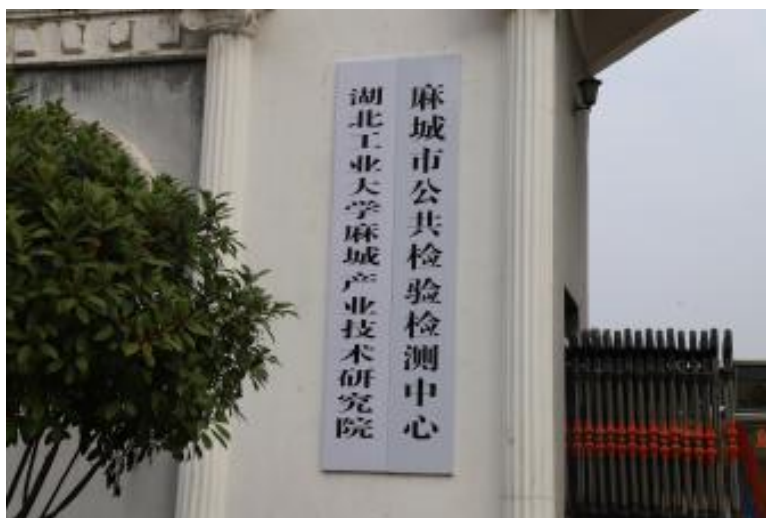 麻城市公共检验检测中心
湖北工业大学麻城产业技术研究院